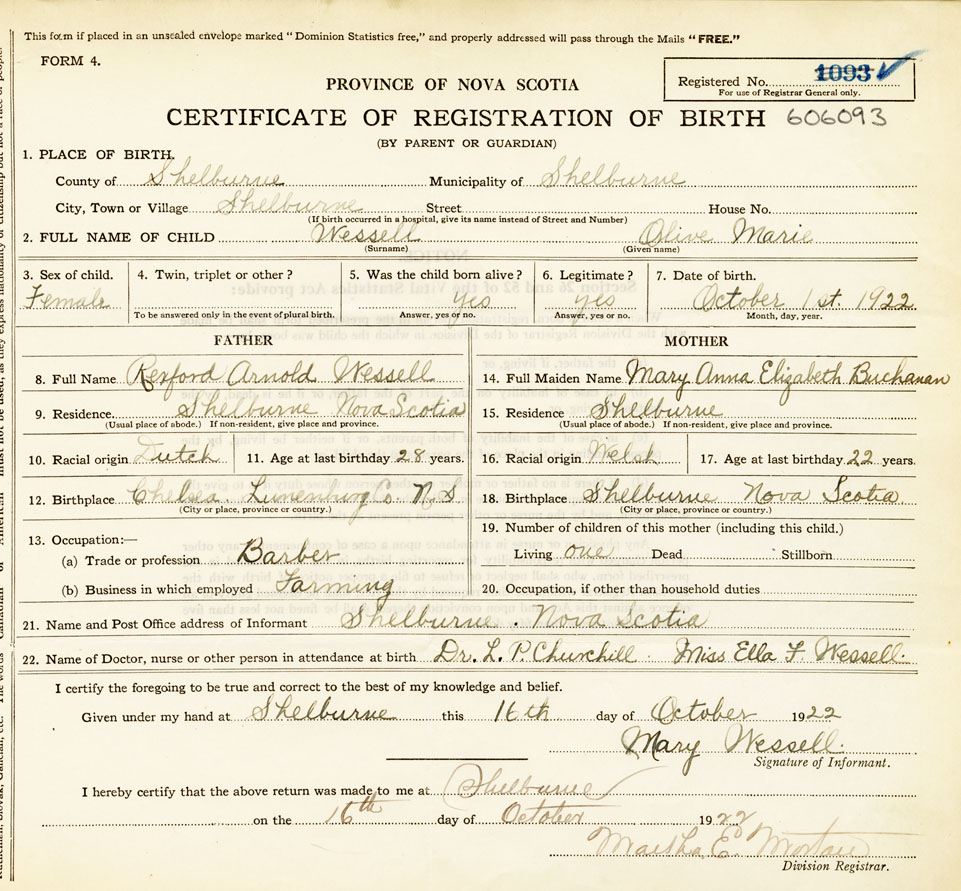 This form if placed in an unsealed envelope marked "Dominion Statistics free," and properly addressed will pass through the Mails "FREE."
FORM 4.
PROVINCE OF NOVA SCOTIA
Registered No. 1093 ✓
For use of Registrar General only.
CERTIFICATE OF REGISTRATION OF BIRTH 606093
(BY PARENT OR GUARDIAN)
1. PLACE OF BIRTH.
County of Shelburne Municipality of Shelburne
City, Town or Village Shelburne Street House No.
(If birth occurred in a hospital, give its name instead of Street and Number)
2. FULL NAME OF CHILD Wessell Olive Marie
(Surname) (Given name)
3. Sex of child. 4. Twin, triplet or other? 5. Was the child born alive? 6. Legitimate? 7. Date of birth.
Female yes yes October 1st. 1922
To be answered only in the event of plural birth. Answer, yes or no. Answer, yes or no. Month, day, year.
FATHER
8. Full Name Rexford Arnold Wessell
9. Residence. Shelburne Nova Scotia
(Usual place of abode.) If non-resident, give place and province.
10. Racial origin Dutch 11. Age at last birthday 28 years.
12. Birthplace Chelsea. Lunenburg Co. N.S
(City or place, province or country.)
13. Occupation:—
(a) Trade or profession Barber
(b) Business in which employed Farming
MOTHER
14. Full Maiden Name Mary Anna Elizabeth Buchanan
15. Residence Shelburne
(Usual place of abode.) If non-resident, give place and province.
16. Racial origin Welsh 17. Age at last birthday 22 years.
18. Birthplace Shelburne Nova Scotia
(City or place, province or country.)
19. Number of children of this mother (including this child.)
Living one Dead Stillborn
20. Occupation, if other than household duties
21. Name and Post Office address of Informant Shelburne. Nova Scotia
22. Name of Doctor, nurse or other person in attendance at birth Dr. L. P. Churchill. Miss Ella F. Wessell.
I certify the foregoing to be true and correct to the best of my knowledge and belief.
Given under my hand at Shelburne this 16th day of October 1922
Mary Wessell.
Signature of Informant.
I hereby certify that the above return was made to me at Shelburne
on the 16th day of October 1922
Martha E.
Division Registrar.